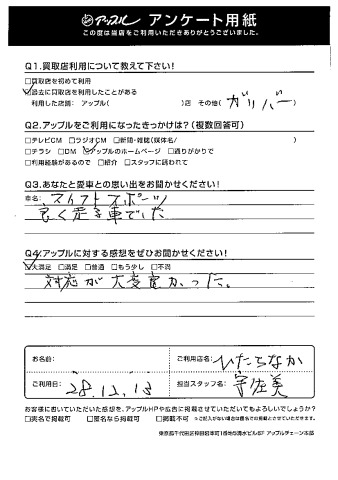 アップル アンケート用紙
この度は当店をご利用いただきありがとうございました。
Q1.買取店利用について教えて下さい!
□買取店を初めて利用
☑過去に買取店を利用したことがある
利用した店舗: アップル( )店 その他( ガリバー )
Q2.アップルをご利用になったきっかけは?(複数回答可)
□テレビCM □ラジオCM □新聞・雑誌(媒体名/ )
□チラシ □DM ☑アップルのホームページ □通りがかりで
□利用経験があるので □紹介 □スタッフに誘われて
Q3.あなたと愛車との思い出をお聞かせください!
車名: スイフトスポーツ
良く走る車でした
Q4.アップルに対する感想をぜひお聞かせください!
☑大満足 □満足 □普通 □もう少し □不満
対応が大変良かった。
お名前:
ご利用店名: ひたちなか
ご利用日: 28.12.13
担当スタッフ名: 宇佐美
お客様に書いていただいた感想を、アップルHPや広告に掲載させていただいてもよろしいでしょうか?
□実名で掲載可 □匿名なら掲載可 □掲載不可 ※ご記入がない場合は匿名での掲載とさせていただきます。
東京都千代田区神田司本町1番地5清水ビル5F アップルチェーン本部